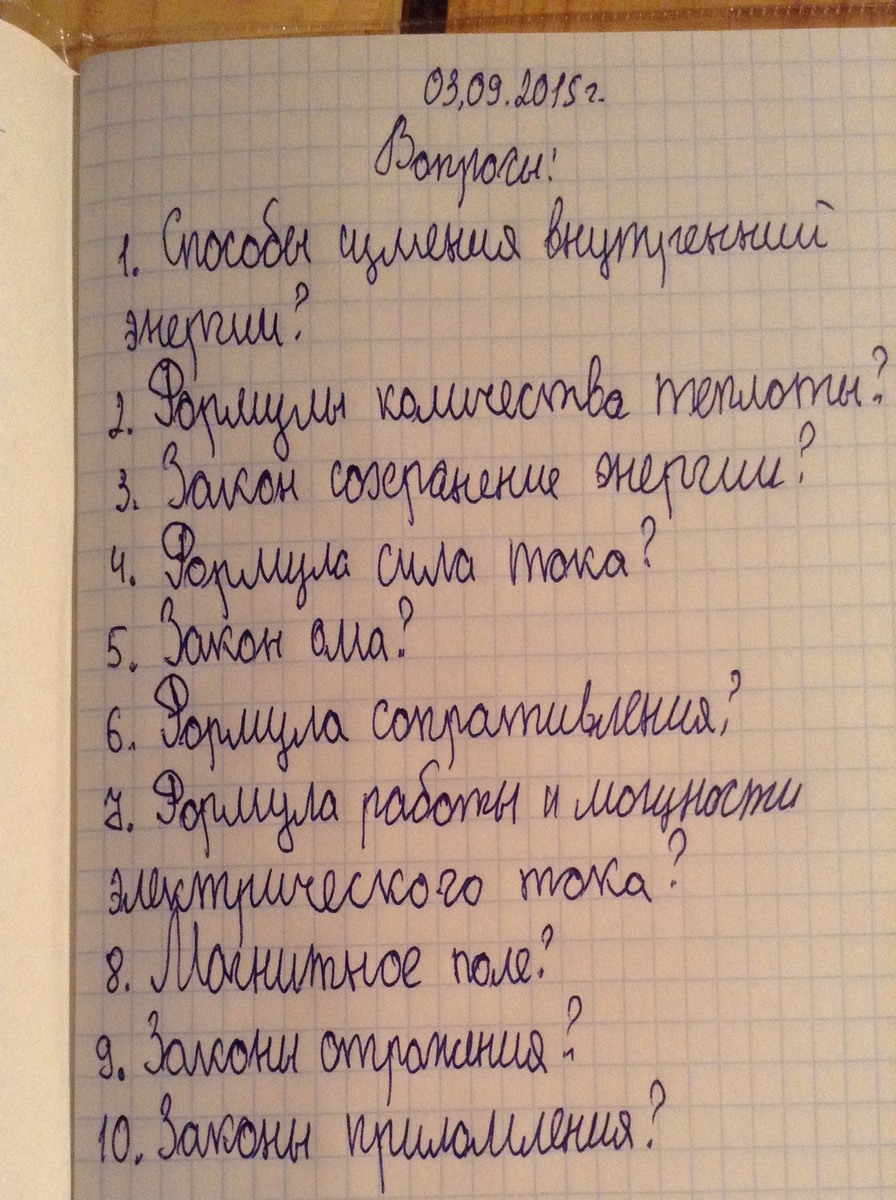 03.09.2015г.
Вопросы:
1. Способы изменения внутренний
энергии?
2. Формулы количества теплоты?
3. Закон сохранение энергии?
4. Формула сила тока?
5. Закон ома?
6. Формула сопративления?
7. Формула работы и мощности
электрического тока?
8. Магнитное поле?
9. Законы отражения?
10. Законы приломления?